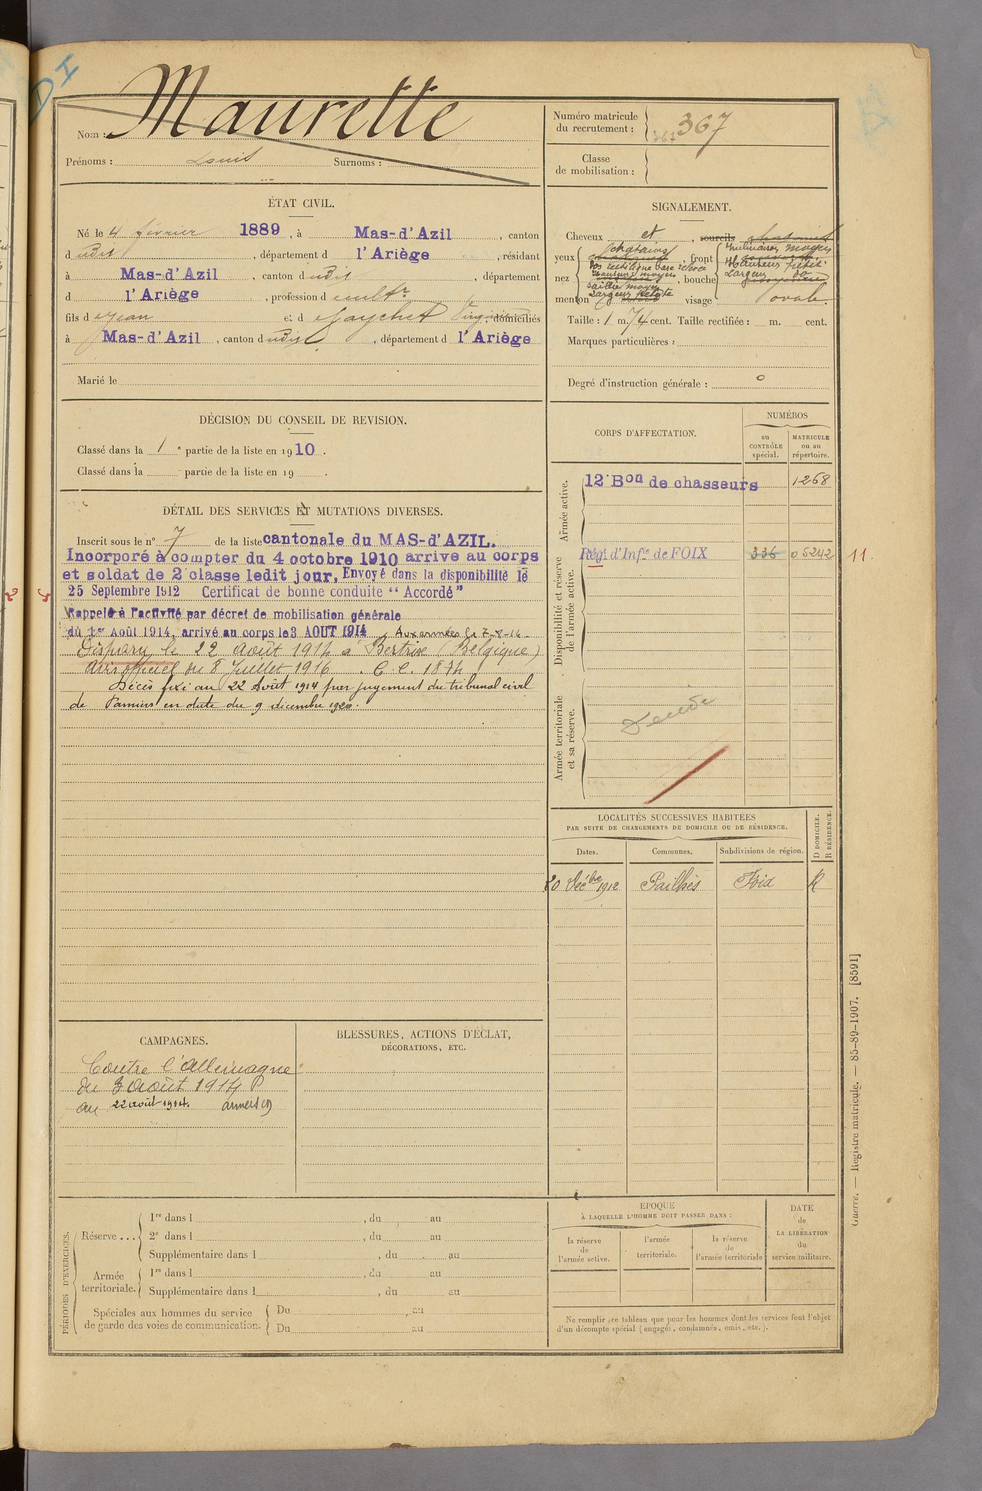 Nom : Maurette
Prénoms : Louis Surnoms :
Numéro matricule du recrutement : 367 367
Classe de mobilisation :
ÉTAT CIVIL.
Né le 4 février 1889, à Mas-d'Azil, canton
dudit, département d l'Ariège, résidant
à Mas-d'Azil, canton dudit, département
d l'Ariège, profession d cultr
fils d Jean et d domiciliés
à Mas-d'Azil, canton dudit, département d l'Ariège
Marié le
SIGNALEMENT.
Cheveux et , sourcils
yeux châtains , front
nez , bouche
menton visage ovale.
Taille : 1 m. 74 cent. Taille rectifiée : m. cent.
Marques particulières :
Degré d'instruction générale : 0
DÉCISION DU CONSEIL DE REVISION.
Classé dans la 1e partie de la liste en 1910.
Classé dans la partie de la liste en 19 .
DÉTAIL DES SERVICES ET MUTATIONS DIVERSES.
Inscrit sous le n° 7 de la liste cantonale du MAS-d'AZIL.
Incorporé à compter du 4 octobre 1910 arrive au corps
et soldat de 2e classe ledit jour. Envoyé dans la disponibilité le
25 Septembre 1912 Certificat de bonne conduite "Accordé"
Rappelé à l'activité par décret de mobilisation générale
du 1er Août 1914, arrivé au corps le 3 AOUT 1914, Aux armées le 7-8-14
Disparu le 22 août 1914 à Bertrix (Belgique)
avis officiel du 8 Juillet 1916
Décès fixé au 22 Août 1914 par jugement du tribunal civil
de Pamiers en date du 9 décembre 1920.
CORPS D'AFFECTATION.
NUMÉROS
au CONTRÔLE spécial.
MATRICULE ou au répertoire.
Armée active.
12e Bon de chasseurs 1268
Disponibilité et réserve de l'armée active.
Régt d'Infie de FOIX 336 05242 11
Armée territoriale et sa réserve.
Décédé
LOCALITÉS SUCCESSIVES HABITÉES
PAR SUITE DE CHANGEMENTS DE DOMICILE OU DE RÉSIDENCE.
Dates. Communes. Subdivisions de région. D DOMICILE. R RÉSIDENCE.
20 Décbre 1912 Pailhès Foix R
CAMPAGNES.
Contre l'Allemagne
du 3 Août 1914
au 22 août 1914.
BLESSURES, ACTIONS D'ÉCLAT,
DÉCORATIONS, ETC.
PÉRIODES D'EXERCICES.
Réserve ... 1re dans l , du au
2e dans l , du au
Supplémentaire dans l , du au
Armée territoriale. 1re dans l , du au
Supplémentaire dans l , du au
Spéciales aux hommes du service de garde des voies de communication. Du au
Du au
EPOQUE
À LAQUELLE L'HOMME DOIT PASSER DANS :
la réserve de l'armée active.
l'armée territoriale.
la réserve de l'armée territoriale
DATE de LA LIBÉRATION du service militaire.
Ne remplir ce tableau que pour les hommes dont les services font l'objet
d'un décompte spécial (engagés, condamnés, omis, etc.).
Guerre. — Registre matricule. — 85-89-1907. [8591]